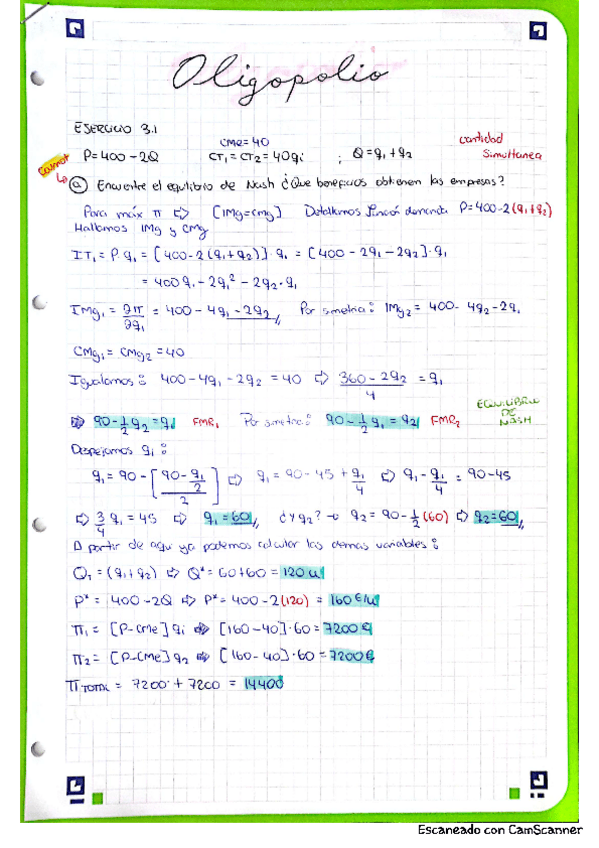 Oligopolio
EJERCICIO 3.1
CMe=40 cantidad
P=400-2Q CT₁=CT₂=40qi ; Q=q₁+q₂ Simultanea
Cournot
ⓐ Encuentre el equilibrio de Nash ¿Que beneficios obtienen las empresas?
Para máx π ⇨ [IMg=CMg] Detallamos función demanda P=400-2(q₁+q₂)
Hallamos IMg y CMg
IT₁=P·q₁=[400-2(q₁+q₂)]·q₁=[400-2q₁-2q₂]·q₁
=400q₁-2q₁²-2q₂·q₁
IMg₁=∂π/∂q₁=400-4q₁-2q₂ Por simetría: IMg₂=400-4q₂-2q₁
CMg₁=CMg₂=40
Igualamos: 400-4q₁-2q₂=40 ⇨ (360-2q₂)/4=q₁
EQUILIBRIO DE NASH
⇨ 90-½q₂=q₁ FMR₁ Por simetria: 90-½q₁=q₂ FMR₂
Despejamos q₁:
q₁=90-[(90-q₁/2)/2] ⇨ q₁=90-45+q₁/4 ⇨ q₁-q₁/4=90-45
⇨ ¾q₁=45 ⇨ q₁=60 ¿Y q₂? → q₂=90-½(60) ⇨ q₂=60
A partir de aqui ya podemos calcular las demas variables:
Q_T=(q₁+q₂) ⇨ Q*=60+60=120u
P*=400-2Q ⇨ P*=400-2(120)=160€/u
π₁=[P-CMe]qi ⇨ [160-40]·60=7200€
π₂=[P-CMe]q₂ ⇨ [160-40]·60=7200€
π TOTAL=7200+7200=14400
Escaneado con CamScanner